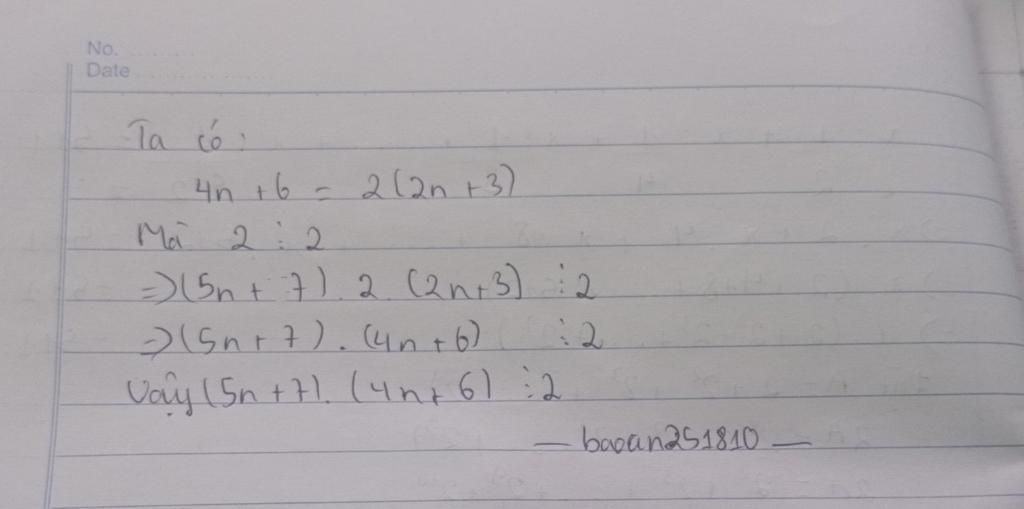 No.
Date
Ta có:
4n + 6 = 2(2n + 3)
Mà 2 ⋮ 2
=>(5n + 7). 2. (2n+3) ⋮ 2
=>(5n + 7). (4n + 6) ⋮ 2
Vậy (5n + 7). (4n + 6) ⋮ 2
— baoan251810 —